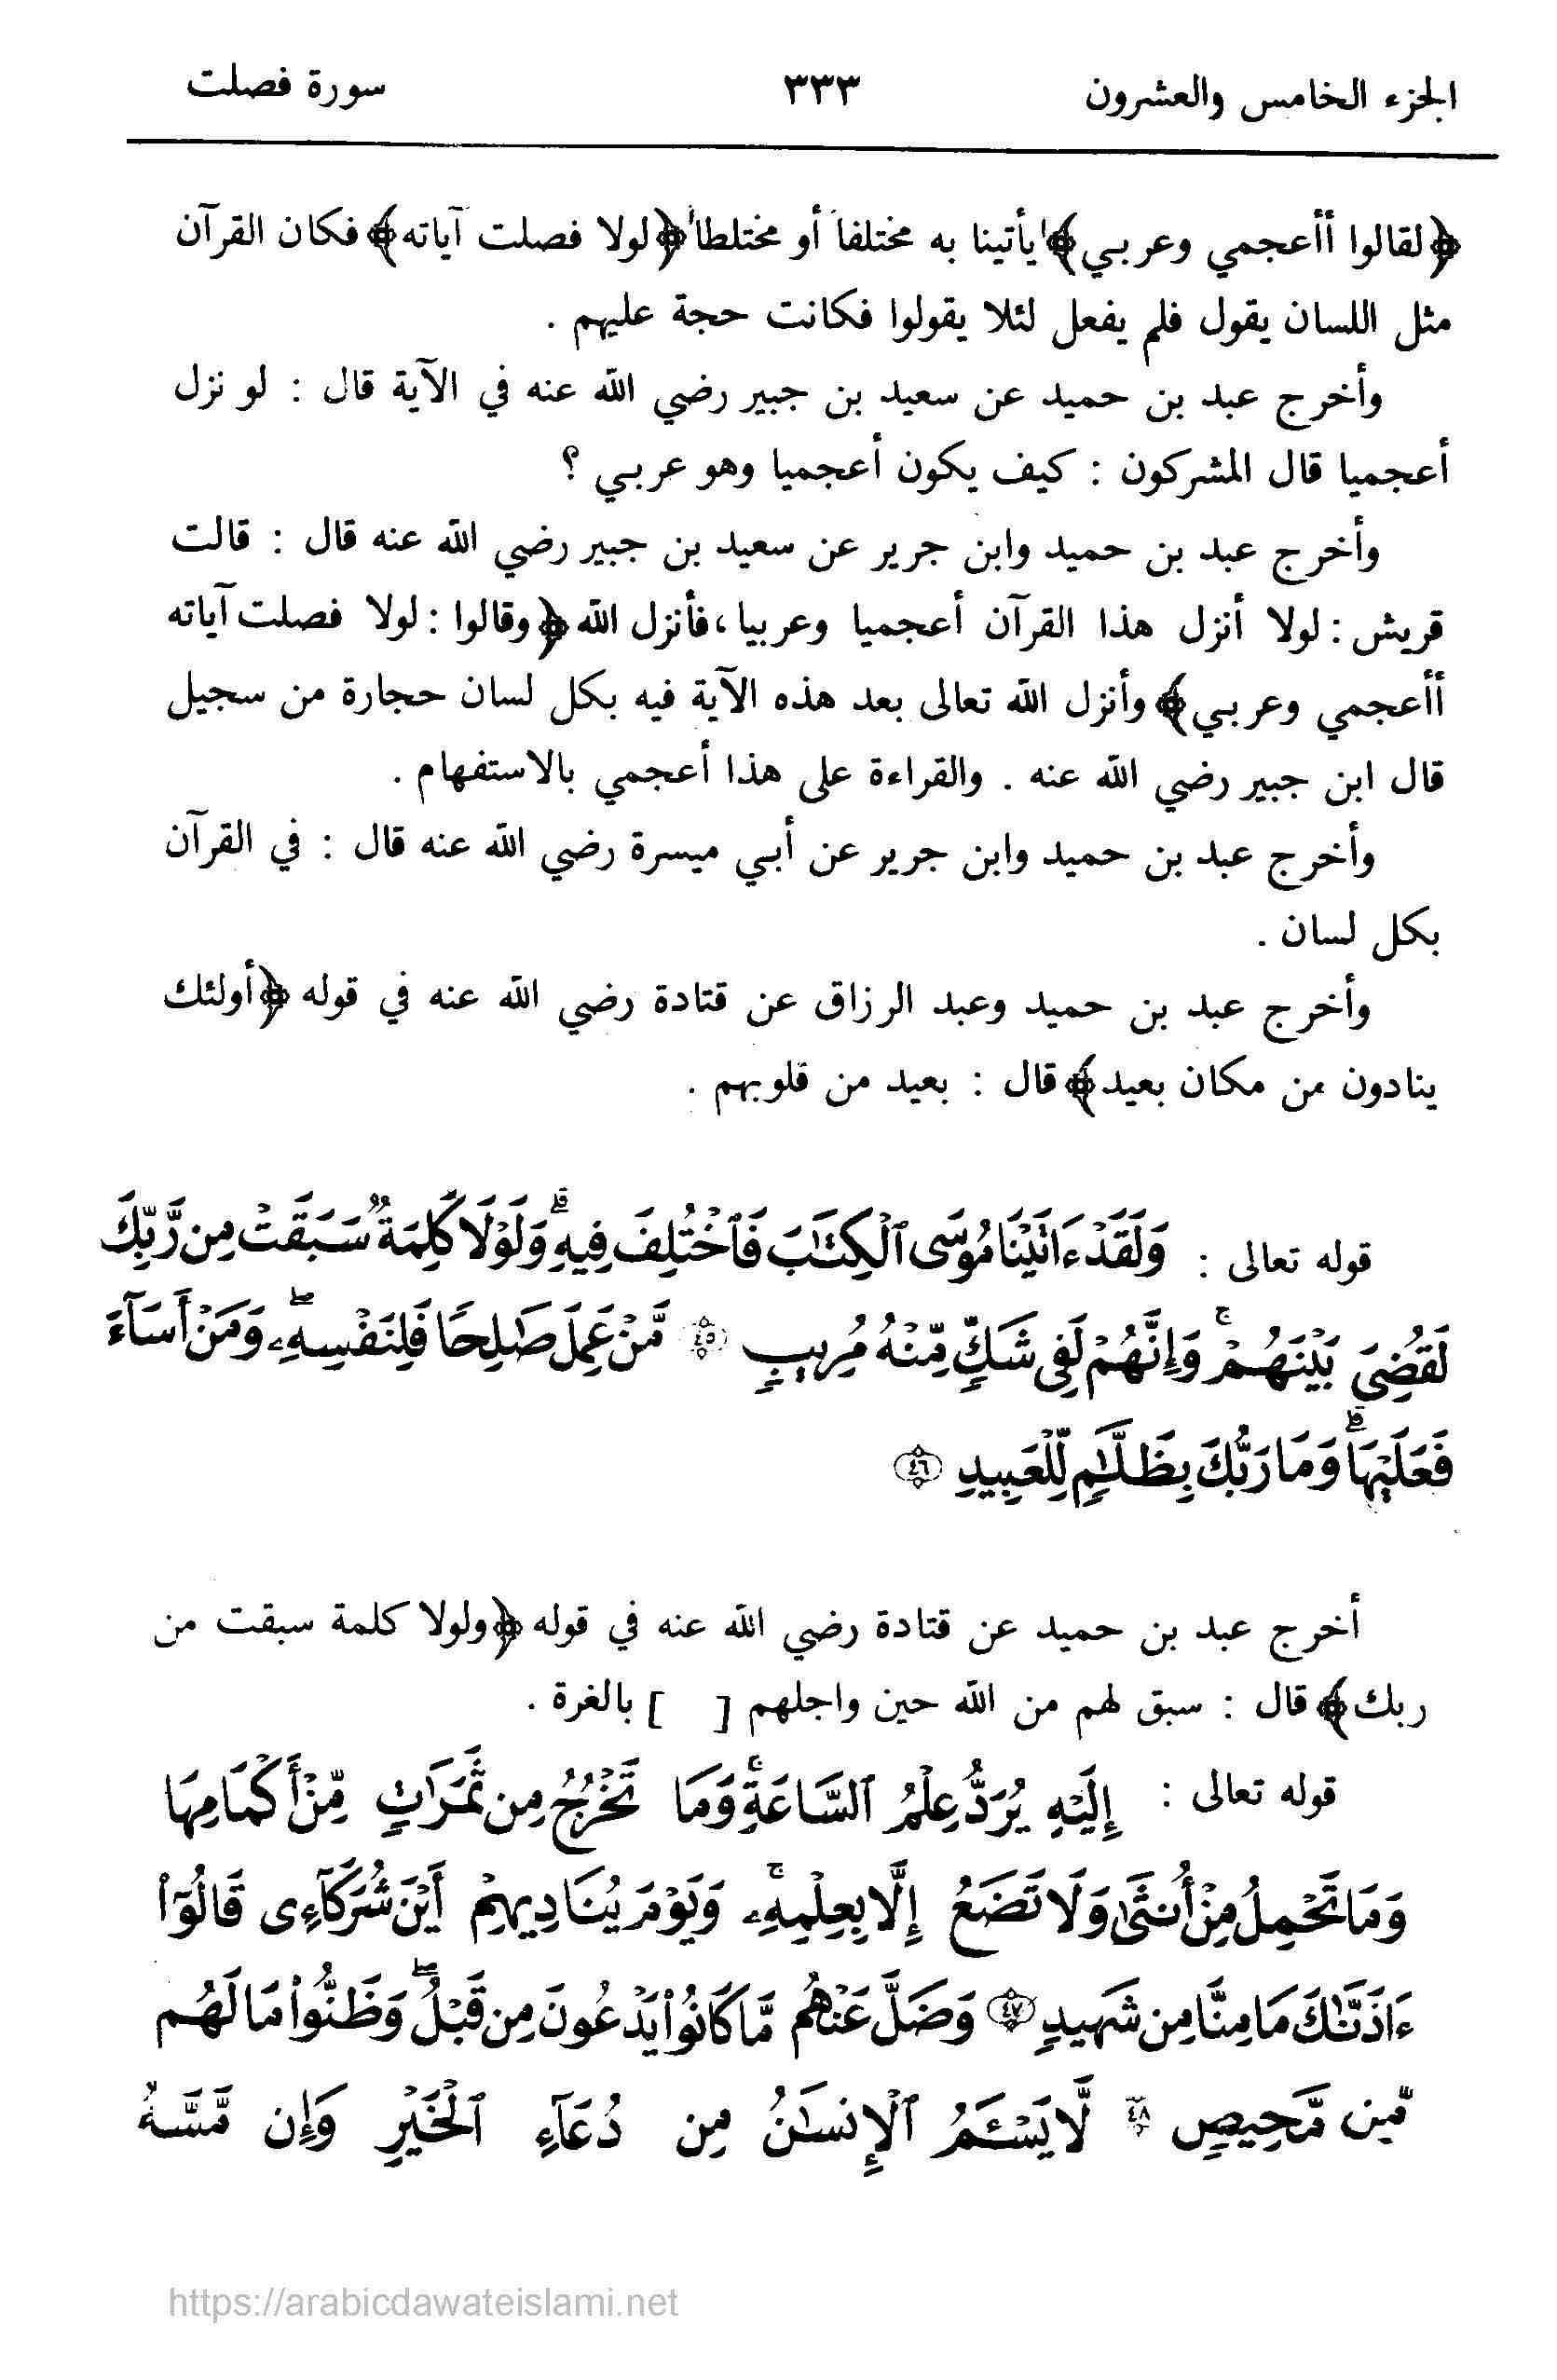 الجزء الخامس والعشرون ٣٣٣ سورة فصلت
﴿لقالوا أأعجمي وعربي﴾ يأتينا به مختلفاً أو مختلطاً ﴿لولا فصلت آياته﴾ فكان القرآن
مثل اللسان يقول فلم يفعل لئلا يقولوا فكانت حجة عليهم .
وأخرج عبد بن حميد عن سعيد بن جبير رضي الله عنه في الآية قال : لو نزل
أعجميا قال المشركون : كيف يكون أعجميا وهو عربي ؟
وأخرج عبد بن حميد وابن جرير عن سعيد بن جبير رضي الله عنه قال : قالت
قريش : لولا أنزل هذا القرآن أعجميا وعربيا ، فأنزل الله ﴿وقالوا : لولا فصلت آياته
أأعجمي وعربي﴾ وأنزل الله تعالى بعد هذه الآية فيه بكل لسان حجارة من سجيل
قال ابن جبير رضي الله عنه . والقراءة على هذا أعجمي بالاستفهام .
وأخرج عبد بن حميد وابن جرير عن أبي ميسرة رضي الله عنه قال : في القرآن
بكل لسان .
وأخرج عبد بن حميد وعبد الرزاق عن قتادة رضي الله عنه في قوله ﴿أولئك
ينادون من مكان بعيد﴾ قال : بعيد من قلوبهم .
قوله تعالى : وَلَقَدْ ءَاتَيْنَا مُوسَى ٱلْكِتَٰبَ فَٱخْتُلِفَ فِيهِ ۗ وَلَوْلَا كَلِمَةٌ سَبَقَتْ مِن رَّبِّكَ
لَقُضِىَ بَيْنَهُمْ ۚ وَإِنَّهُمْ لَفِى شَكٍّ مِّنْهُ مُرِيبٍ ﴿٤٥﴾ مَّنْ عَمِلَ صَٰلِحًا فَلِنَفْسِهِۦ ۖ وَمَنْ أَسَآءَ
فَعَلَيْهَا ۗ وَمَا رَبُّكَ بِظَلَّٰمٍ لِّلْعَبِيدِ ﴿٤٦﴾
أخرج عبد بن حميد عن قتادة رضي الله عنه في قوله ﴿ولولا كلمة سبقت من
ربك﴾ قال : سبق لهم من الله حين واجلهم [ ] بالغرة .
قوله تعالى : إِلَيْهِ يُرَدُّ عِلْمُ ٱلسَّاعَةِ ۚ وَمَا تَخْرُجُ مِن ثَمَرَٰتٍ مِّنْ أَكْمَامِهَا
وَمَا تَحْمِلُ مِنْ أُنثَىٰ وَلَا تَضَعُ إِلَّا بِعِلْمِهِۦ ۚ وَيَوْمَ يُنَادِيهِمْ أَيْنَ شُرَكَآءِى قَالُوٓا۟
ءَاذَنَّٰكَ مَا مِنَّا مِن شَهِيدٍ ﴿٤٧﴾ وَضَلَّ عَنْهُم مَّا كَانُوا۟ يَدْعُونَ مِن قَبْلُ ۖ وَظَنُّوا۟ مَا لَهُم
مِّن مَّحِيصٍ ﴿٤٨﴾ لَّا يَسْـَٔمُ ٱلْإِنسَٰنُ مِن دُعَآءِ ٱلْخَيْرِ وَإِن مَّسَّهُ
https://arabicdawateislami.net